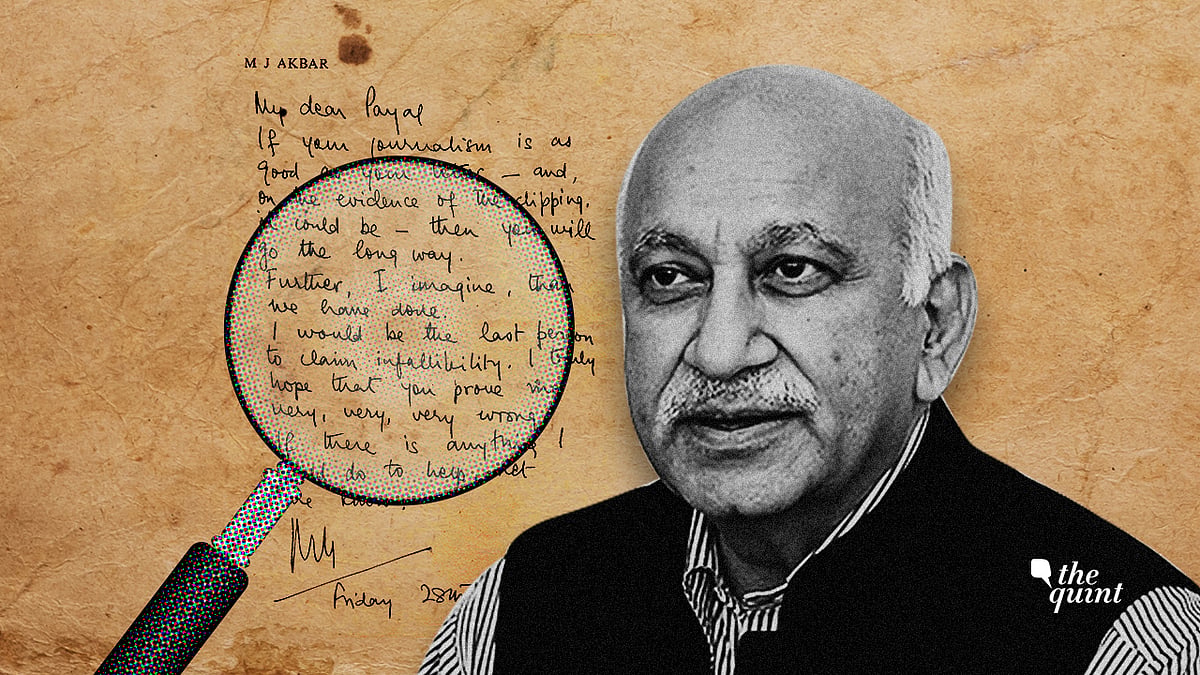 M J AKBAR
My dear Payal
If your journalism is as
good as your letter — and,
on the evidence of the clipping,
it could be — then you will
go the long way.
Further, I imagine, than
we have done.
I would be the last person
to claim infallibility. I truly
hope that you prove me
very, very, very wrong
If there is anything I
do to help let
me know.
Friday 28th
the
quint